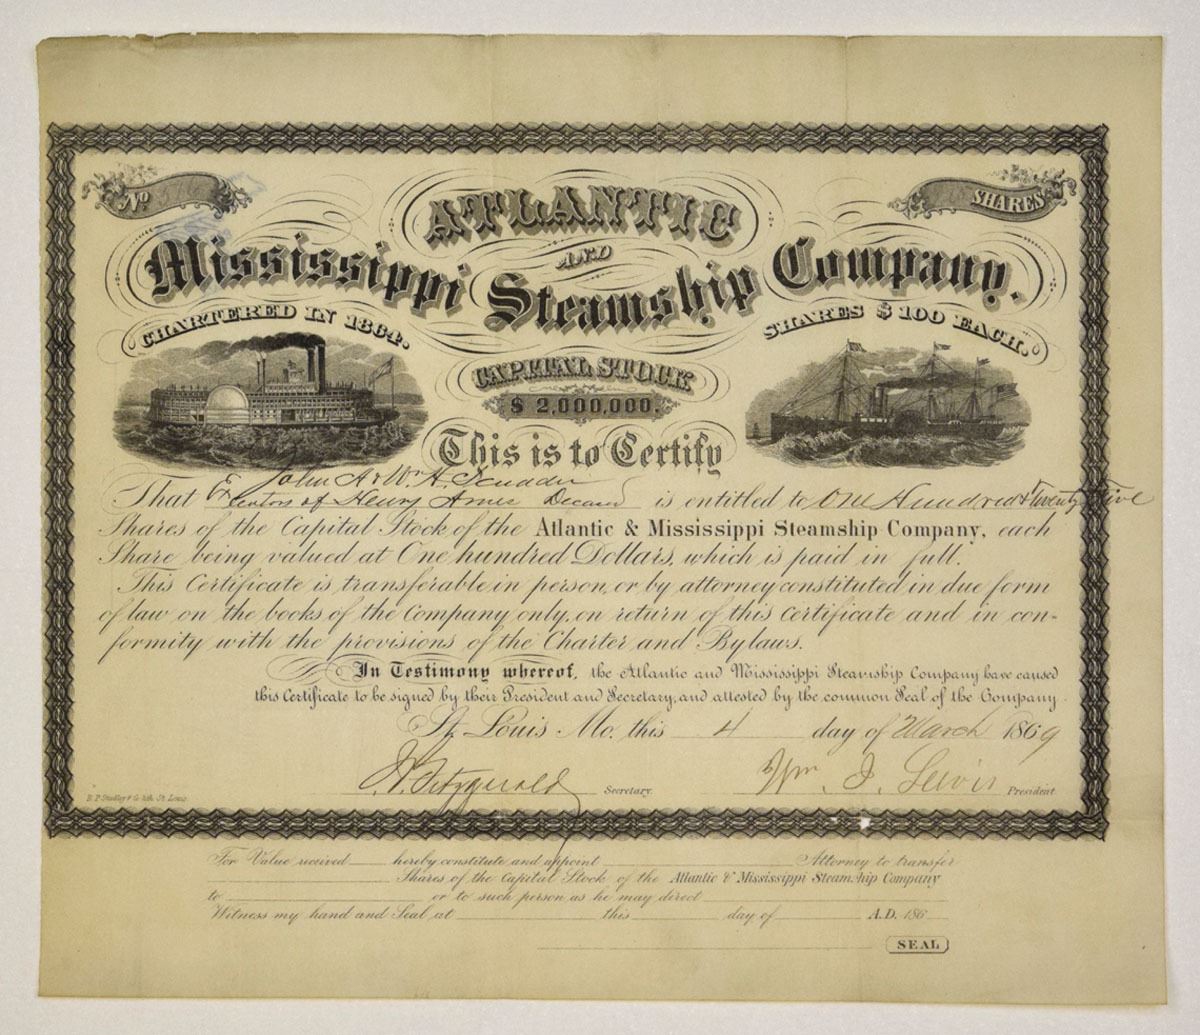 No
SHARES
ATLANTIC
AND
Mississippi Steamship Company.
CHARTERED IN 1864.
SHARES $100 EACH.
CAPITAL STOCK
$ 2,000,000.
This is to Certify
John A & Wm H. Scudder
That Executors of Henry Ames Decasd is entitled to One Hundred & Twenty Five
Shares of the Capital Stock of the Atlantic & Mississippi Steamship Company, each
Share being valued at One hundred Dollars, which is paid in full.
This Certificate is transferable in person, or by attorney constituted in due form
of law on the books of the Company only, on return of this certificate and in con-
formity with the provisions of the Charter and Bylaws.
In Testimony whereof, the Atlantic and Mississippi Steamship Company have caused
this Certificate to be signed by their President and Secretary, and attested by the common Seal of the Company.
St. Louis Mo. this 4 day of March 1869
Fitzgerald Secretary. Wm. J. Lewis President
R. P. Studley & Co. lith. St. Louis
For Value received hereby constitute and appoint Attorney to transfer
Shares of the Capital Stock of the Atlantic & Mississippi Steamship Company
to or to such person as he may direct
Witness my hand and Seal at this day of A.D. 186
SEAL